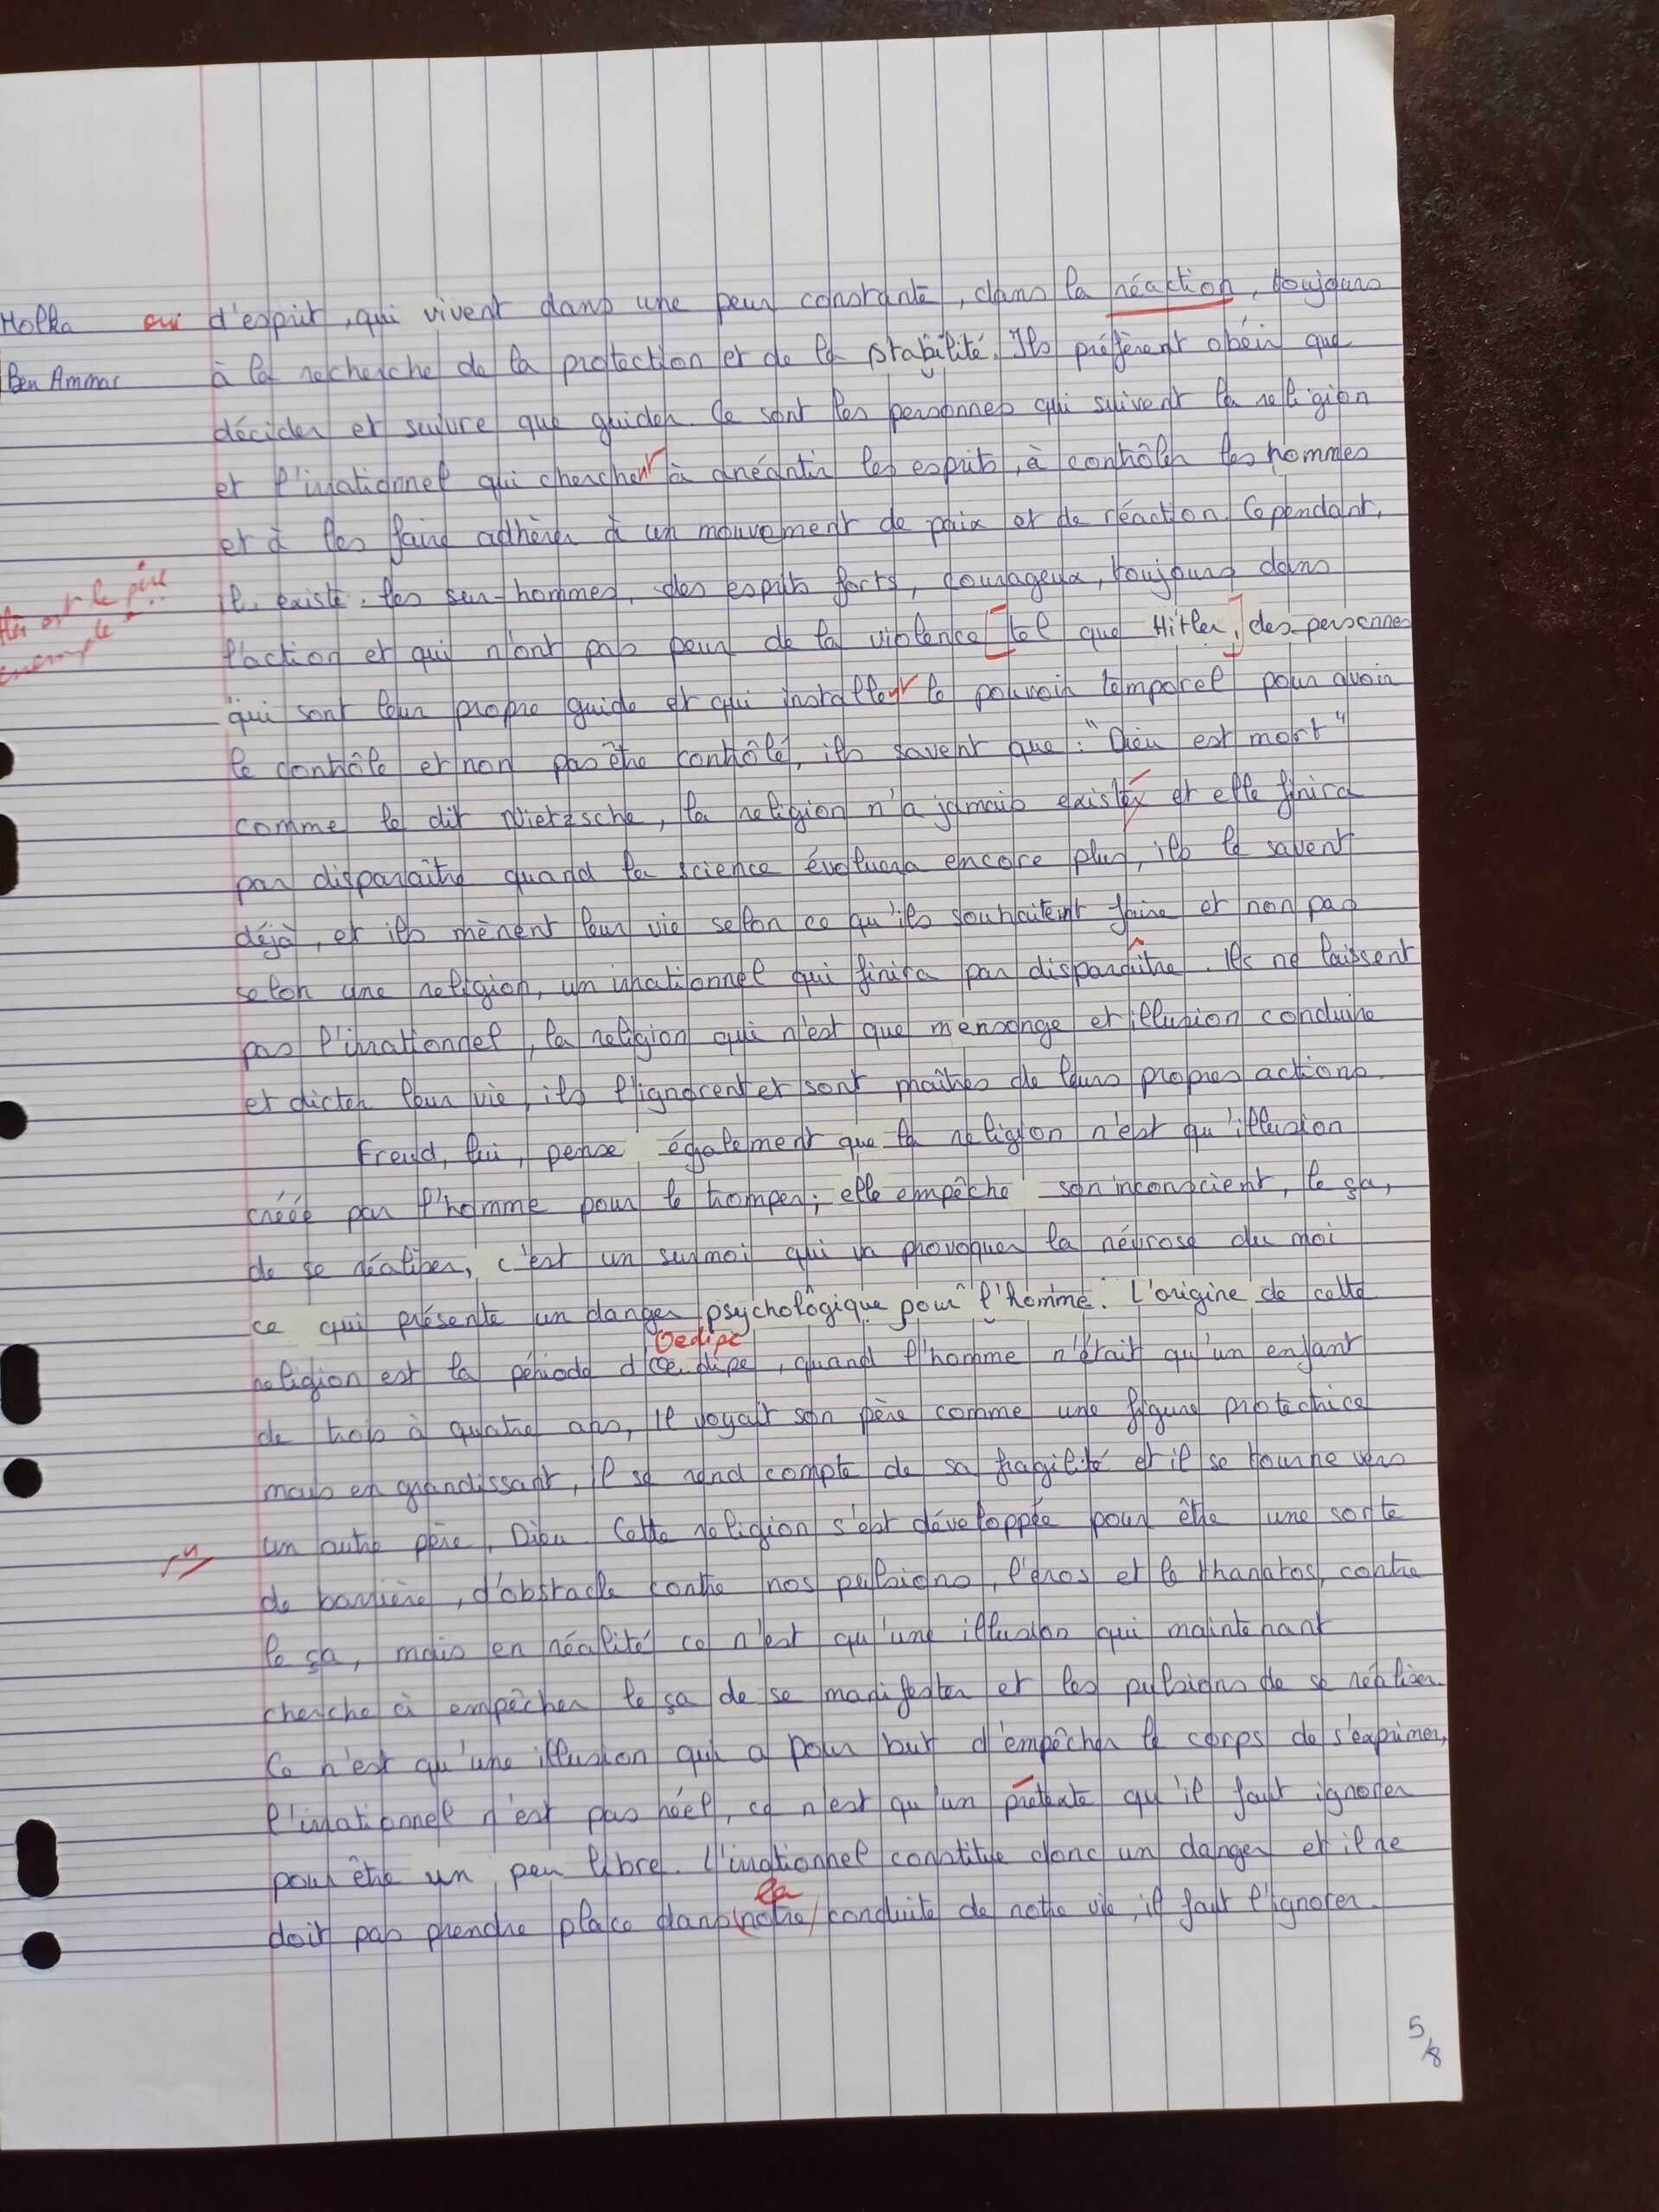 Holka oui d'esprit, qui vivent dans une peur constante, dans la réaction, toujours
Ben Ammar à la recherche de la protection et de la stabilité. Ils préfèrent obéir que
décider et suivre que guider. Ce sont les personnes qui suivent la religion
et l'irrationnel qui cherchent à anéantir les esprits, à contrôler les hommes
et à les faire adhérer à un mouvement de paix et de réaction. Cependant,
il existe les sur-hommes, des esprits forts, courageux, toujours dans
est le pire
l'action et qui n'ont pas peur de la violence [tel que Hitler,] des personnes
exemple !
qui sont leur propre guide et qui installent le pouvoir temporel pour avoir
le contrôle et non pas être contrôlé, ils savent que : "Dieu est mort"
comme le dit Nietzsche, la religion n'a jamais existé et elle finira
par disparaître quand la science évoluera encore plus, ils le savent
déjà, et ils mènent leur vie selon ce qu'ils souhaitent faire et non pas
selon une religion, un irrationnel qui finira par disparaître. Ils ne laissent
pas l'irrationnel, la religion qui n'est que mensonge et illusion conduire
et dicter leur vie, ils l'ignorent et sont maîtres de leurs propres actions.
Freud, lui, pense également que la religion n'est qu'illusion
créée par l'homme pour le tromper; elle empêche son inconscient, le ça,
de se réaliser, c'est un surmoi qui va provoquer la névrose du moi
ce qui présente un danger psychologique pour l'homme. L'origine de cette
Oedipe
religion est la période d'oedipe, quand l'homme n'était qu'un enfant
de trois à quatre ans, il voyait son père comme une figure protectrice
mais en grandissant, il se rend compte de sa fragilité et il se tourne vers
un autre père, Dieu. Cette religion s'est développée pour être une sorte
de barrière, d'obstacle contre nos pulsions, l'éros et le thanatos, contre
le ça, mais en réalité ce n'est qu'une illusion qui maintenant
cherche à empêcher le ça de se manifester et les pulsions de se réaliser.
Ce n'est qu'une illusion qui a pour but d'empêcher le corps de s'exprimer,
l'irrationnel n'est pas réel, ce n'est qu'un prétexte qu'il faut ignorer
pour être un peu libre. L'irrationnel constitue donc un danger et il ne
la
doit pas prendre place dans (notre) conduite de notre vie, il faut l'ignorer.
5/8